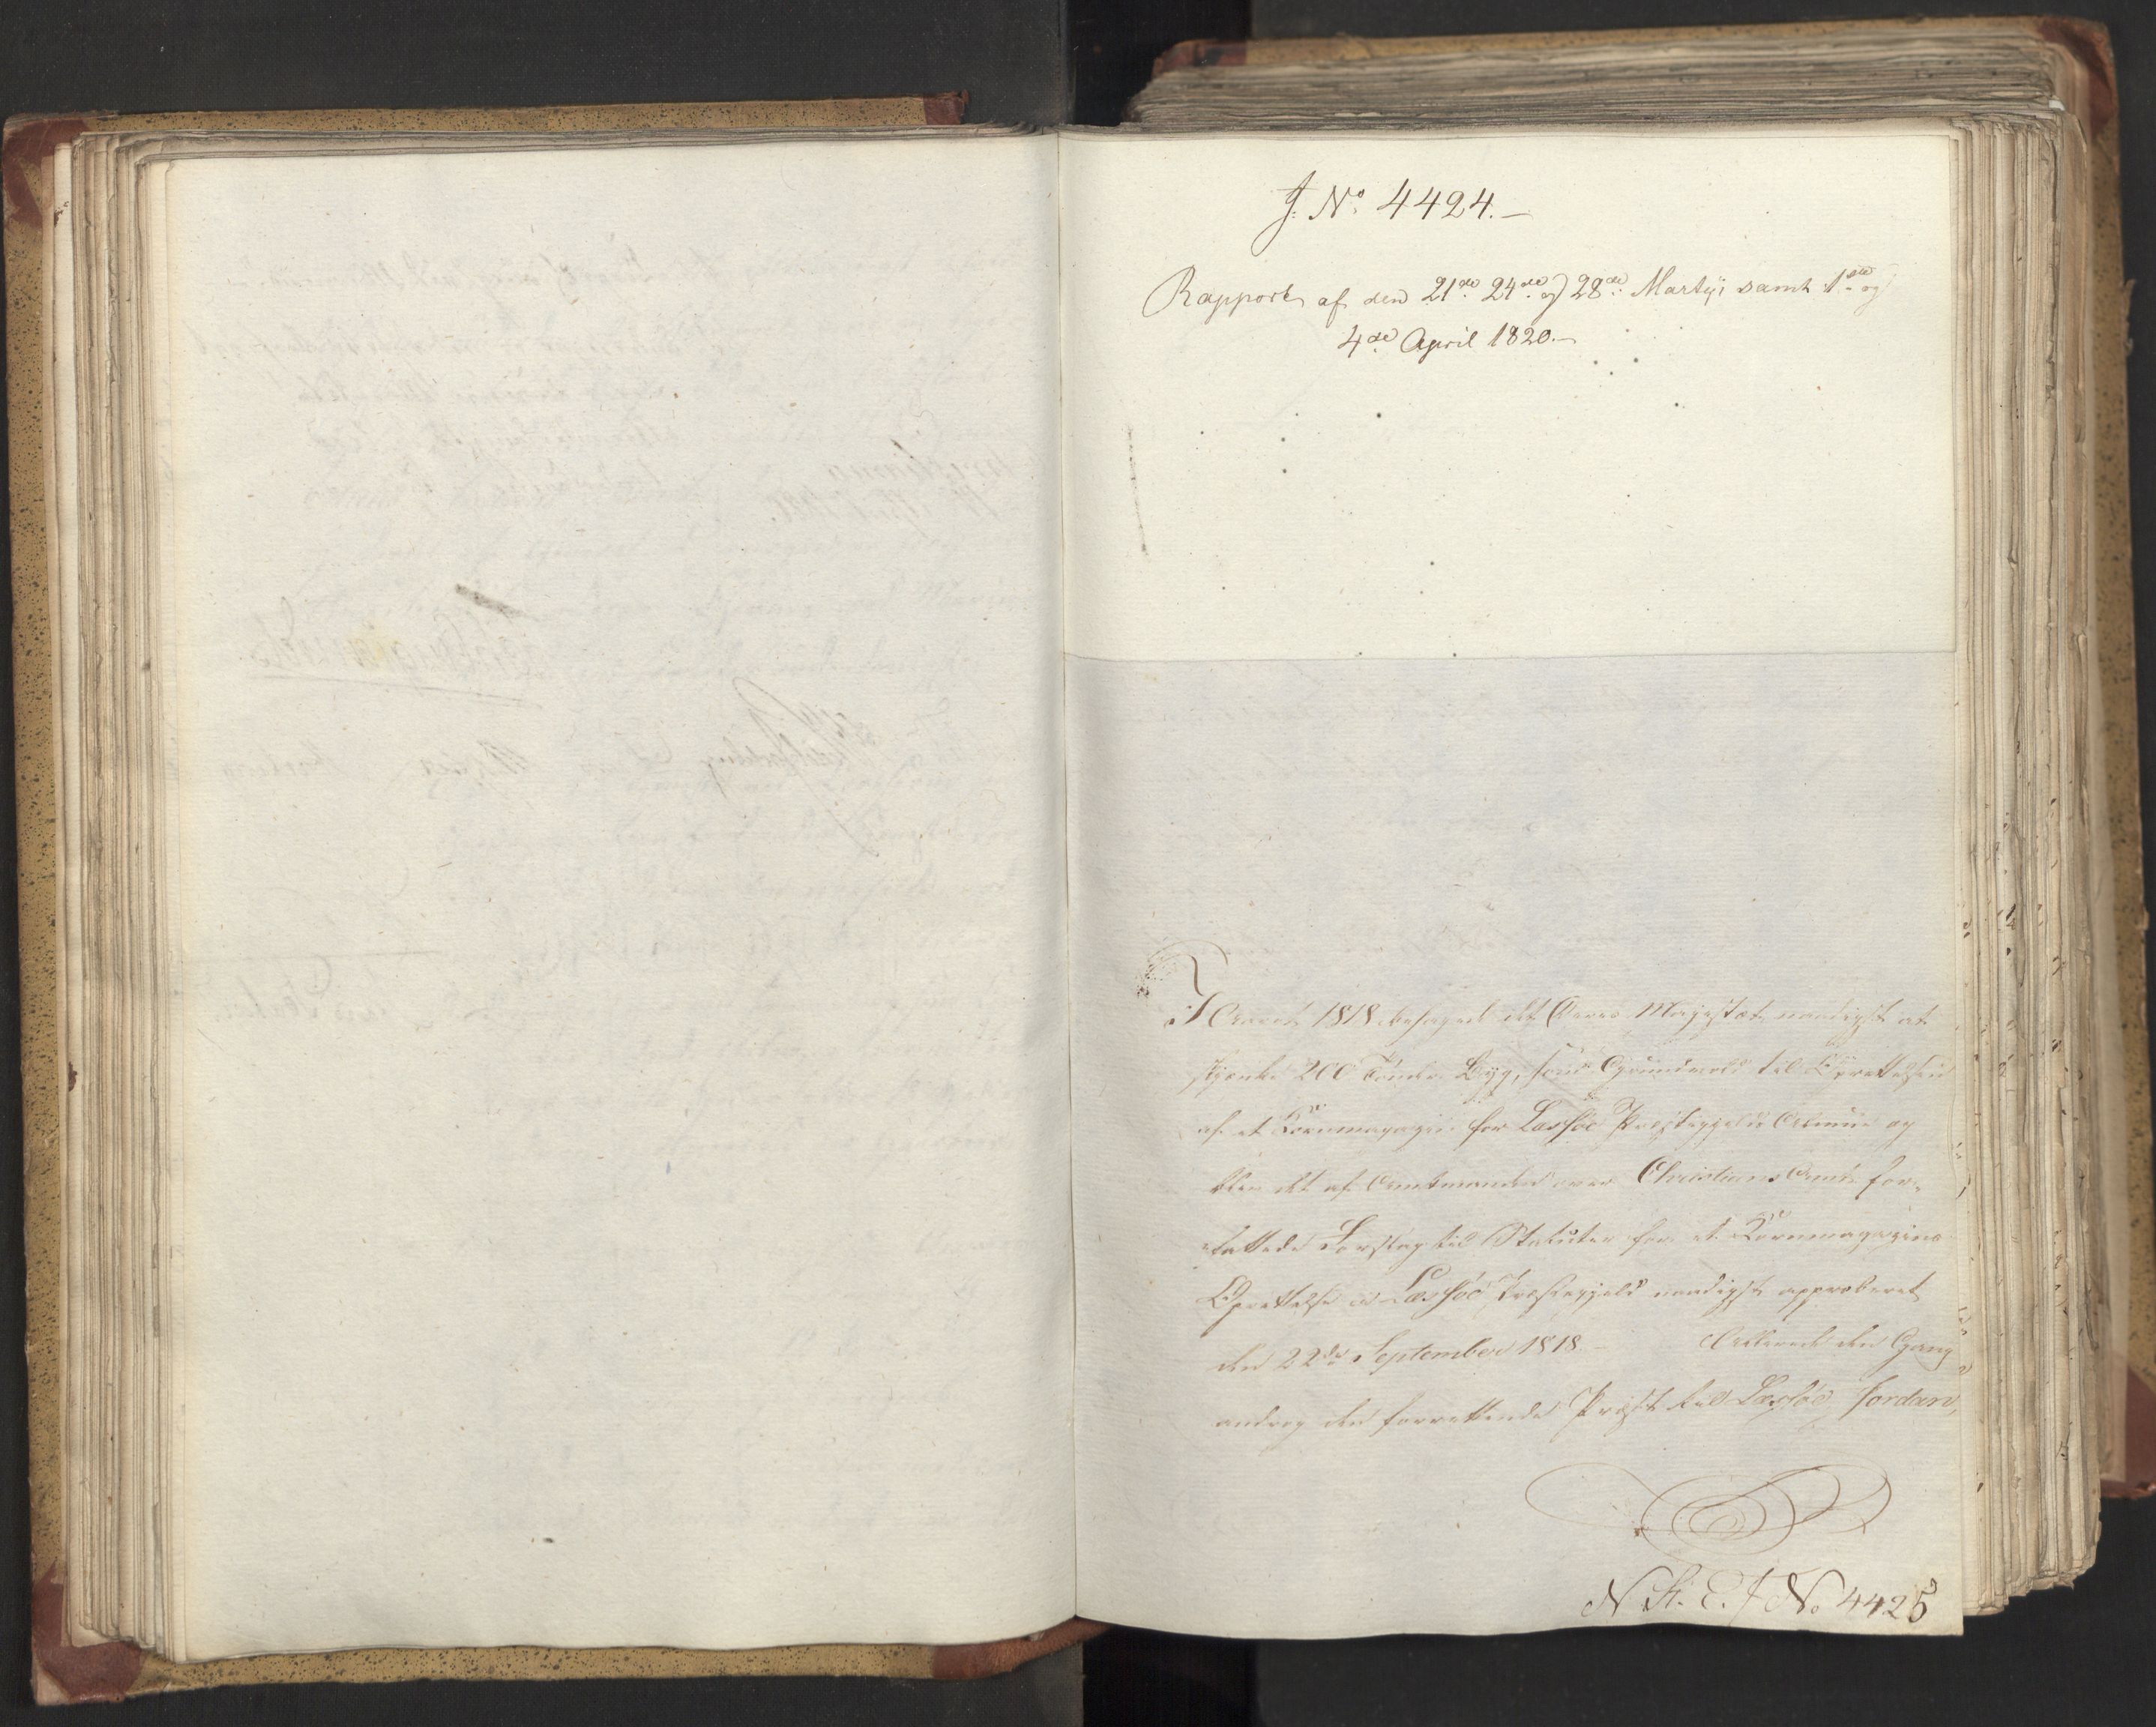 J. No 4424.—
Rapport af den 21de 24de og 28de Martii samt 1ste og
4de April 1820.—
I Aaret 1818 behagede det Deres Majestæt naadigst at
skjænke 200 Tønder Byg, som Grundvold til Oprettelsen
af et Kornmagazin for Læssøe Præstegjelds Almue og
blev det af Amtmanden over Christians Amt for-
fattede Forslag til Statuter for et Kornmagazins
Oprettelse i Læssøe Præstegjeld naadigst approberet
den 22de September 1818.— Allerede den Gang
androg den forrettende Præst til Læssøe, Jordan,
N. St. E. J No 4425